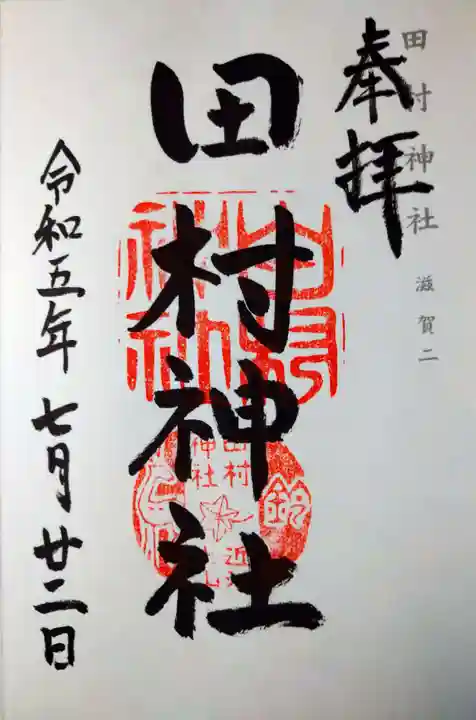 田村神社 滋賀二
奉拝
田村神社
田村神社
田村
神社
令和五年 七月廿二日